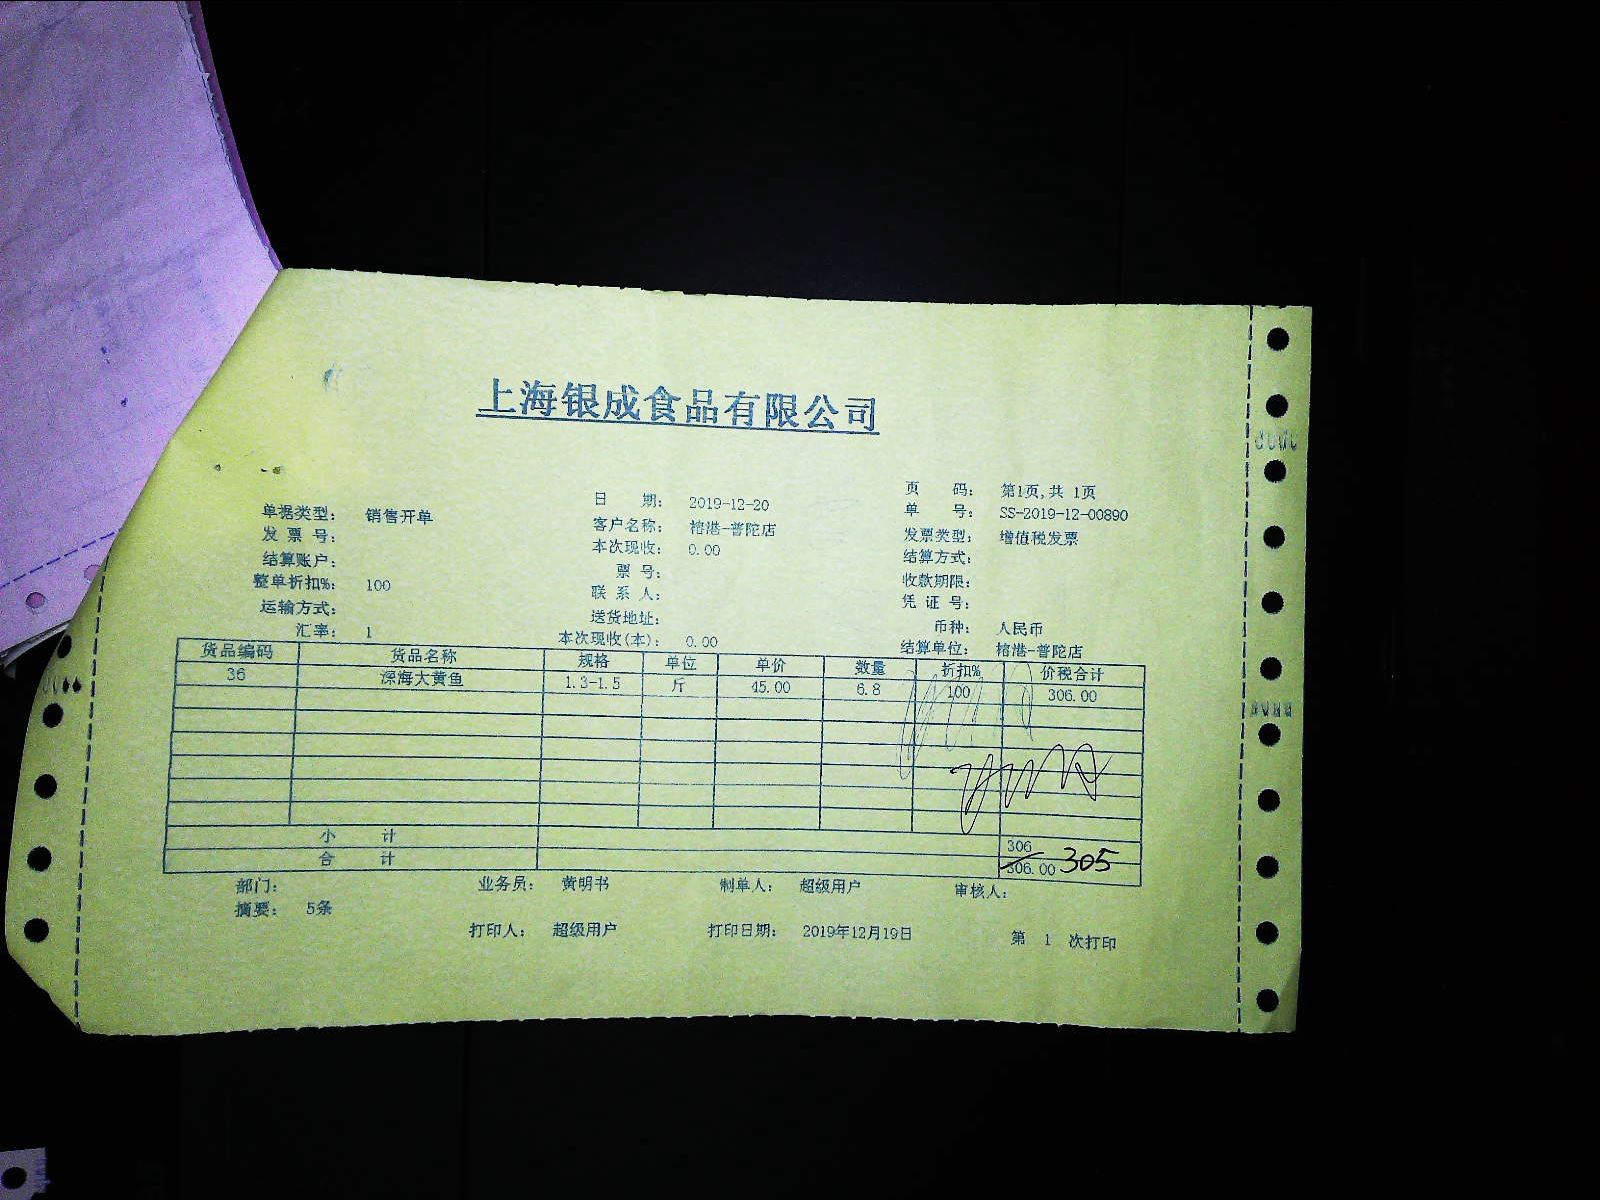 上海银成食品有限公司
页 码： 第1页,共 1页
单据类型： 销售开单 日 期： 2019-12-20 单 号： SS-2019-12-00890
发 票 号： 客户名称： 榕港-普陀店 发票类型： 增值税发票
结算账户： 本次现收： 0.00 结算方式：
整单折扣%： 100 票 号： 收款期限：
运输方式： 联 系 人： 凭 证 号：
送货地址： 币种： 人民币
汇率： 1 本次现收(本)： 0.00 结算单位： 榕港-普陀店
货品编码 货品名称 规格 单位 单价 数量 折扣% 价税合计
36 深海大黄鱼 1.3-1.5 斤 45.00 6.8 100 306.00
小 计 306
合 计 306.00 305
部门： 业务员： 黄明书 制单人： 超级用户 审核人：
摘要： 5条
打印人： 超级用户 打印日期： 2019年12月19日 第 1 次打印